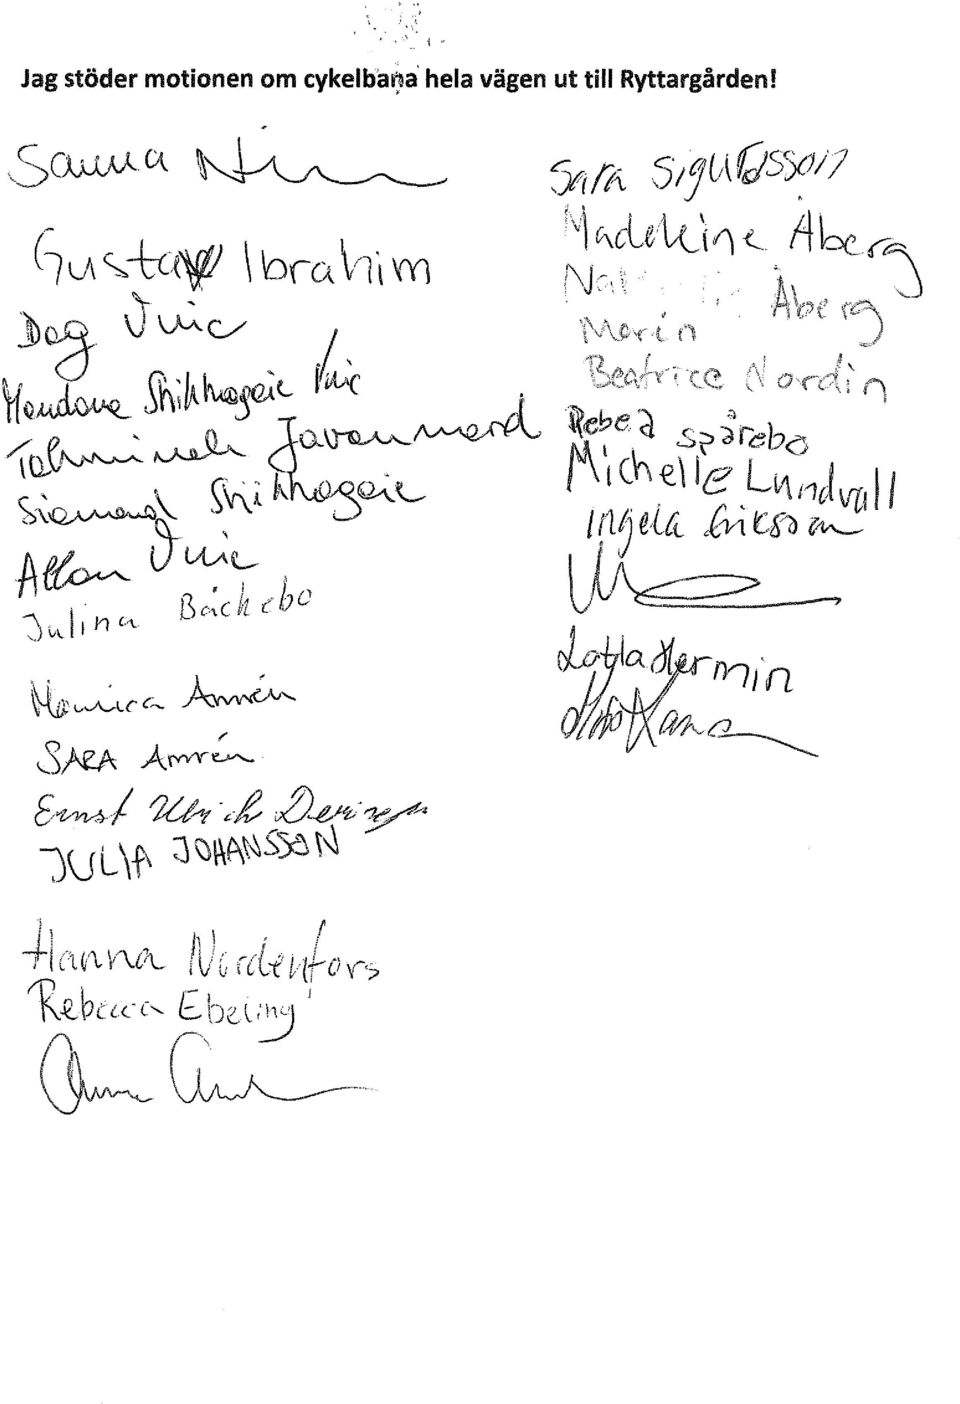 Jag stöder motionen om cykelbana hela vägen ut till Ryttargården!
Sanna
Gustav Ibrahim
Dag Vuic
Mandana Shikhagaie Vuic
Tahmineh Javanmard
Siamand Shikhagaie
Allan Vuic
Julina Bäckebo
Monica Amrén
SARA Amrén
Ernst Ulrich
JULIA JOHANSSON
Hanna Nordenfors
Rebecca Ebeling
Sara Sigurdsson
Madeleine Åberg
Åberg
Marin
Beatrice Nordin
Rebecka spårebo
Michelle Lundvall
Ingela Eriksson
Lotta Hermin